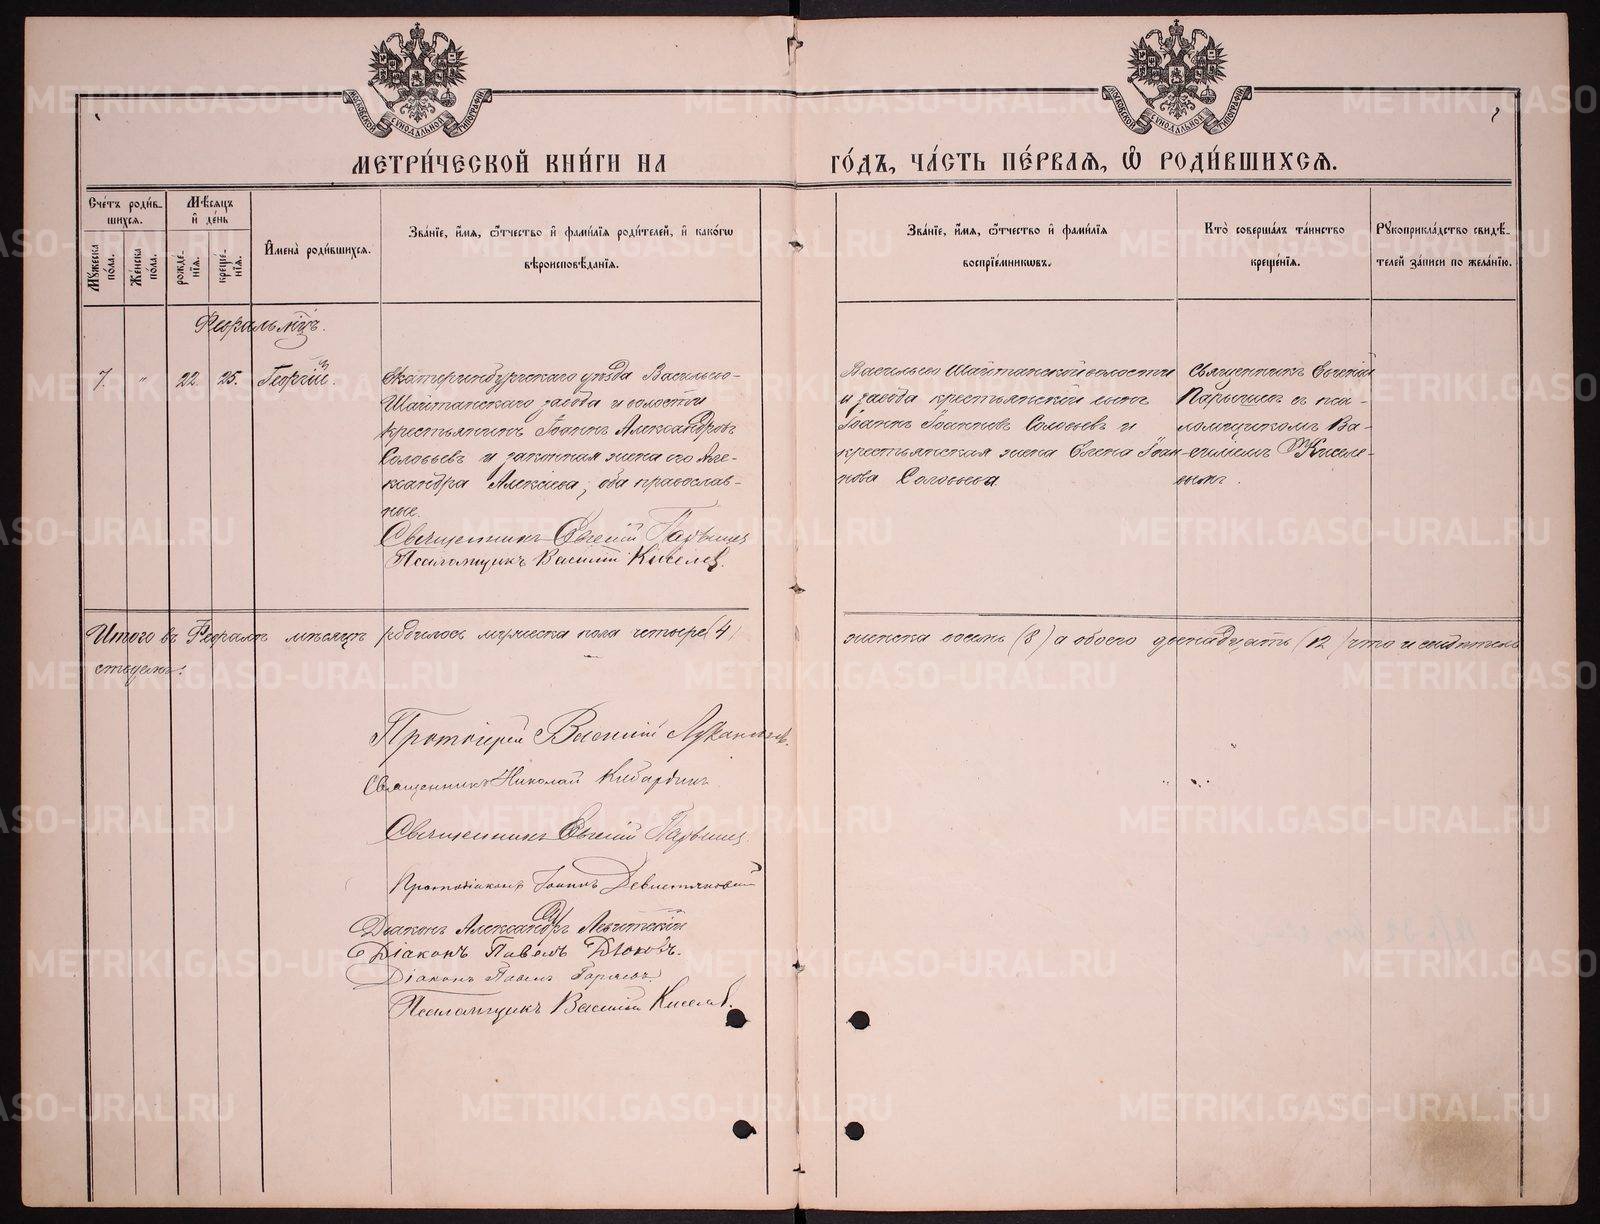 МОСКОВСКОЙ СУНОДАЛЬНОЙ ТИПОГРАФІИ
МОСКОВСКОЙ СУНОДАЛЬНОЙ ТИПОГРАФІИ
МЕТРИ́ЧЕСКОЙ КНИ́ГИ НА
ГО́ДЪ, ЧА́СТЬ ПЕ́РВАЯ, Ѡ҆ РОДИ́ВШИХСЯ.
Сче́тъ роди́в-
шихся.
Мѣ́сяцъ
и҆ де́нь
Му́жеска
пола.
Же́нска
по́ла.
рожде-
нія.
креще-
нія.
И҆мена̀ роди́вшихся.
Зва́ніе, и҆́мя, ѻ҆́тчество и҆ фами́лія роди́телей, и҆ како́гѡ
вѣроисповѣ́данія.
Зва́ніе, и҆́мя, ѻ҆́тчество и҆ фами́лія
воспріе́мниковъ.
Кто̀ соверша́лъ та́инство
креще́нія.
Рукоприкла́дство свидѣ́-
телей за́писи по жела́нію.
Февраль мѣсяцъ.
7. " 22. 25. Георгій.
Екатеринбургскаго уѣзда Васильево-
Шайтанскаго завода и волости
крестьянинъ Іоаннъ Александровъ
Соловьевъ и законная жена его Але-
ксандра Алексѣева; оба православ-
ные.
Священникъ Евгеній
Псаломщикъ Василій Киселевъ.
Васильево Шайтанской волости
и завода крестьянскій сынъ
Іоаннъ Іоанновъ Соловьевъ и
крестьянская жена Елена Іоан-
нова Соловьева
Священникъ Евгеній
съ пса-
ломщикомъ Ва-
силіемъ Киселе-
вымъ.
Итого въ Февралѣ мѣсяцѣ родилось мужеска пола четыре (4)
женска восемь (8) а обоего двенадцать (12) что и свидѣтель
ствуемъ:
Протоіерей Василій
Священникъ Николай Кибардинъ
Священникъ Евгеній
Протодіаконъ Іоаннъ
Діаконъ Александръ Левитскій
Діаконъ Павелъ Дюковъ.
Діаконъ Павелъ
Псаломщикъ Василій Киселевъ.
METRIKI.GASO-URAL.RU